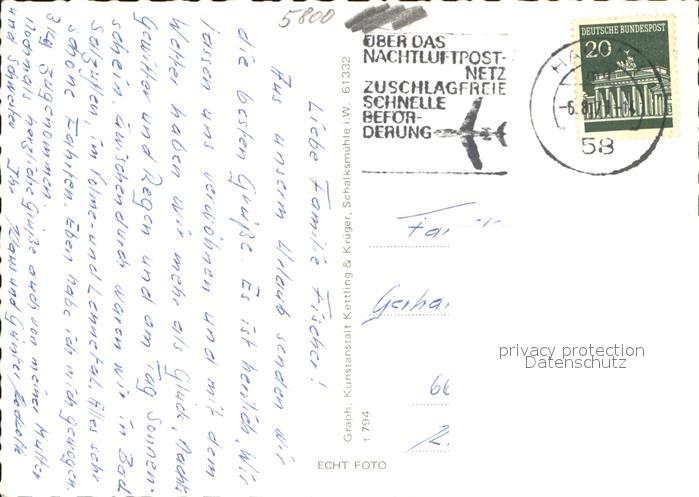 5800
ÜBER DAS
NACHTLUFTPOST-
NETZ
ZUSCHLAGFREIE
SCHNELLE
BEFÖR-
DERUNG
DEUTSCHE BUNDESPOST
20
HA
-6.8.
58
Liebe Familie Fischer!
Aus unserm Urlaub senden wir
die besten Grüße. Es ist herrlich, wir
lassen uns verwöhnen und mit dem
Wetter haben wir mehr als Glück, nachts
Gewitter und Regen und am Tag Sonnen-
schein. Zwischendurch waren wir in Bad
Salzuflen, im Volme- und Lennetal. Alles sehr
schöne Fahrten. Eben habe ich mich gewogen.
3 kg zugenommen.
Nochmals herzliche Grüße auch von meiner Mutter
und Schwester Ihr Klaus und Günter
Graph. Kunstanstalt Kettling & Krüger, Schalksmühle i.W. 61332
t 794
Fam
Gerha
66
ECHT FOTO
privacy protection
Datenschutz